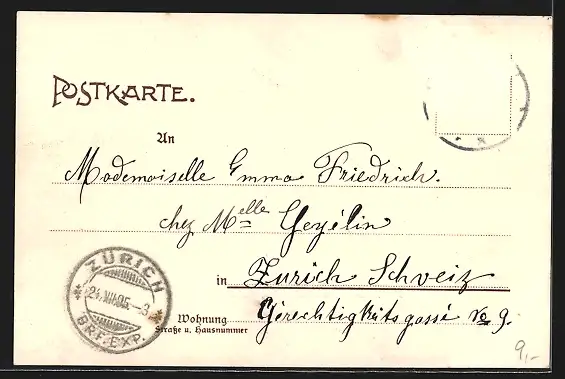 POSTKARTE.
An
Mademoiselle Emma Friedrich.
chez Melle Gezélin
in Zurich Schweiz
Gerechtigkeitsgasse No 9.
Wohnung
Straße u. Hausnummer
ZÜRICH
21.VII.05.-3
BRF.EXP.
9,-